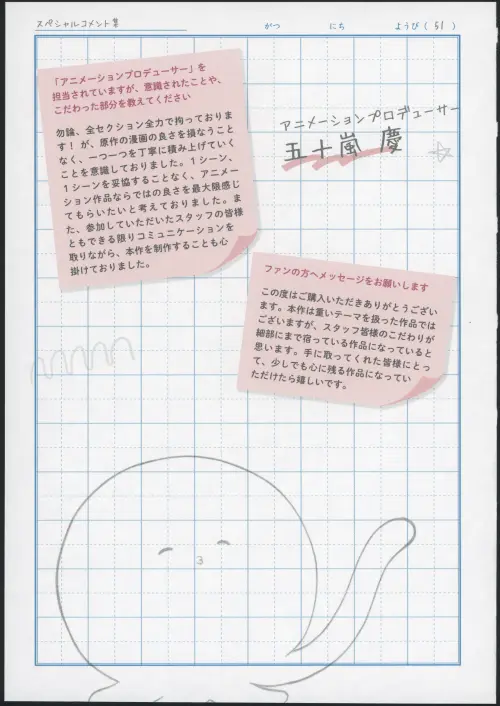 スペシャルコメント集
がつ にち ようび(51)
「アニメーションプロデューサー」を
担当されていますが、意識されたことや、
こだわった部分を教えてください
勿論、全セクション全力で拘っておりま
す！ が、原作の漫画の良さを損なうこと
なく、一つ一つを丁寧に積み上げていく
ことを意識しておりました。1シーン、
1シーンを妥協することなく、アニメー
ション作品ならではの良さを最大限感じ
てもらいたいと考えておりました。ま
た、参加していただいたスタッフの皆様
ともできる限りコミュニケーションを
取りながら、本作を制作することも心
掛けておりました。
アニメーションプロデューサー
五十嵐 慶
ファンの方へメッセージをお願いします
この度はご購入いただきありがとうござい
ます。本作は重いテーマを扱った作品では
ございますが、スタッフ皆様のこだわりが
細部にまで宿っている作品になっていると
思います。手に取ってくれた皆様にとっ
て、少しでも心に残る作品になってい
ただけたら嬉しいです。